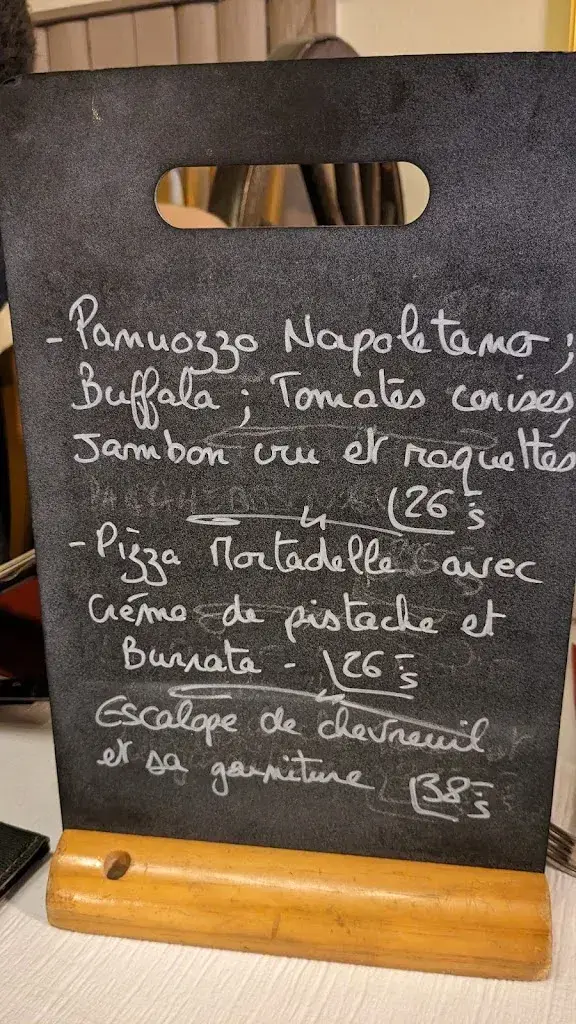 - Panuozzo Napoletano ;
Buffala ; Tomates cerises,
Jambon cru et roquettes
26.-s
- Pizza Mortadelle avec
Créme de pistache et
Burrata - 26.-s
Escalope de chevreuil
et sa garniture 38.-s